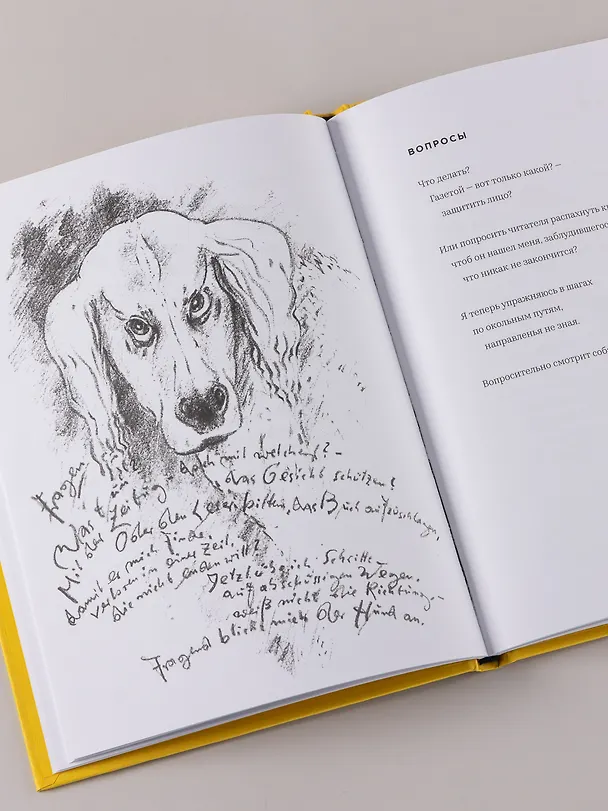 Fragen
Was tun?
Mit der Zeitung doch mit welcher? –
das Gesicht schützen?
Oder den Leser bitten, das Buch aufzuschlagen,
damit er mich finde,
verloren in einer Zeit,
die nicht enden will?
Jetzt üb ich Schritte
auf abschüssigen Wegen.
weiß nicht die Richtung –
Fragend blickt mich der Hund an.
ВОПРОСЫ
Что делать?
Газетой – вот только какой? –
защитить лицо?
Или попросить читателя распахнуть к
чтоб он нашел меня, заблудившегос
что никак не закончится?
Я теперь упражняюсь в шагах
по окольным путям,
направленья не зная.
Вопросительно смотрит соб